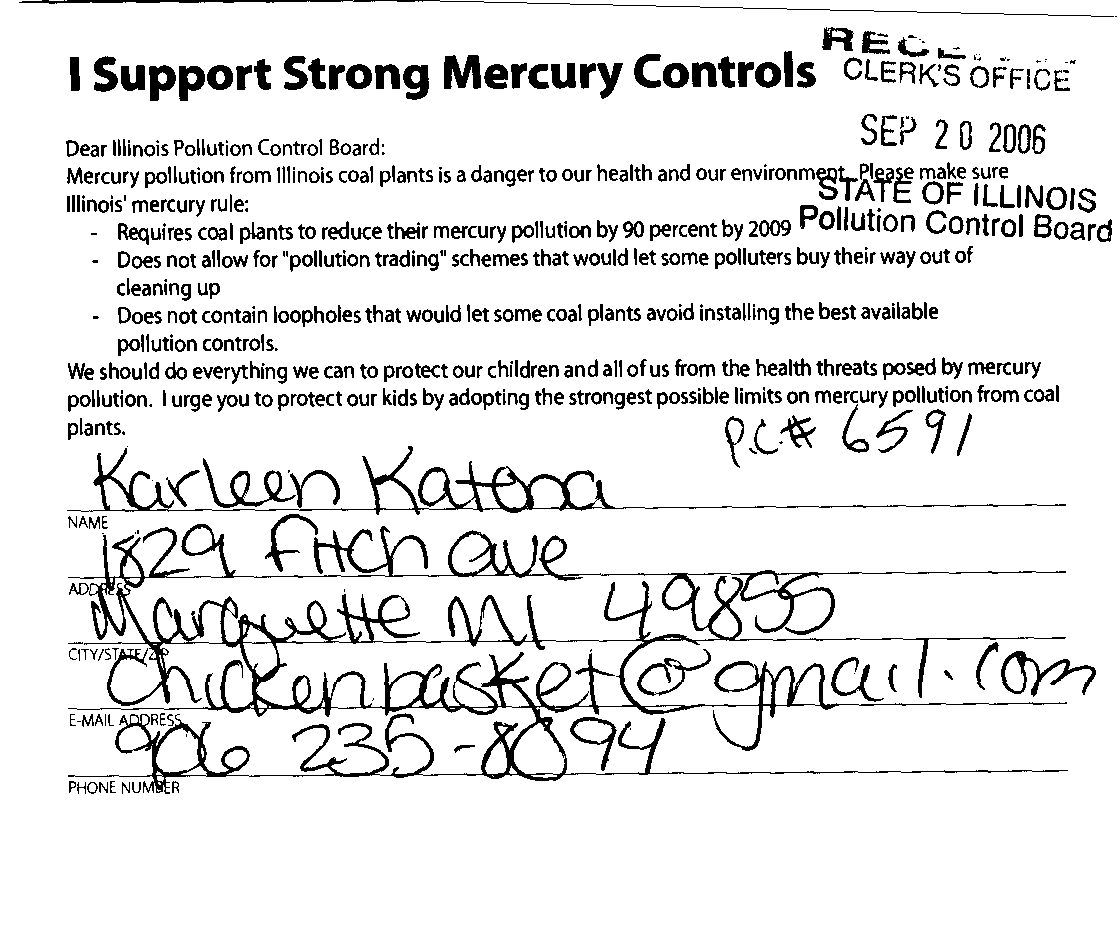 I Support Strong Mercury Controls
CLERK'S OFFICE
SEP 20 2006
STATE OF ILLINOIS
Pollution Control Board
Dear Illinois Pollution Control Board:
Mercury pollution from Illinois coal plants is a danger to our health and our environment. Please make sure
Illinois' mercury rule:
- Requires coal plants to reduce their mercury pollution by 90 percent by 2009
- Does not allow for "pollution trading" schemes that would let some polluters buy their way out of
cleaning up
- Does not contain loopholes that would let some coal plants avoid installing the best available
pollution controls.
We should do everything we can to protect our children and all of us from the health threats posed by mercury
pollution. I urge you to protect our kids by adopting the strongest possible limits on mercury pollution from coal
plants.
P.C# 6591
Karleen Katona
NAME
1829 Fitch ave
ADDRESS
Marquette MI 49855
CITY/STATE/ZIP
Chickenbasket@gmail.com
E-MAIL ADDRESS
906 235-8094
PHONE NUMBER